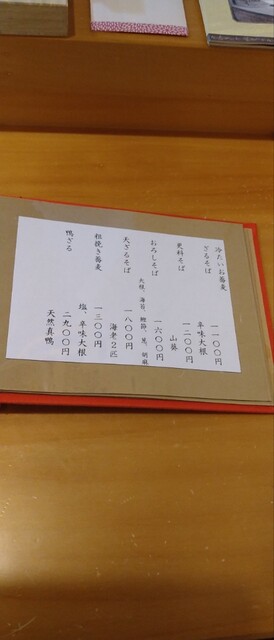 冷たいお蕎麦
ざるそば 一一〇〇円
辛味大根
更科そば 一二〇〇円
山葵
おろしそば 一六〇〇円
大根、海苔、鰹節、葱、胡麻
天ざるそば 一八〇〇円
海老2匹
粗挽き蕎麦 一三〇〇円
塩、辛味大根
鴨ざる 二九〇〇円
天然真鴨